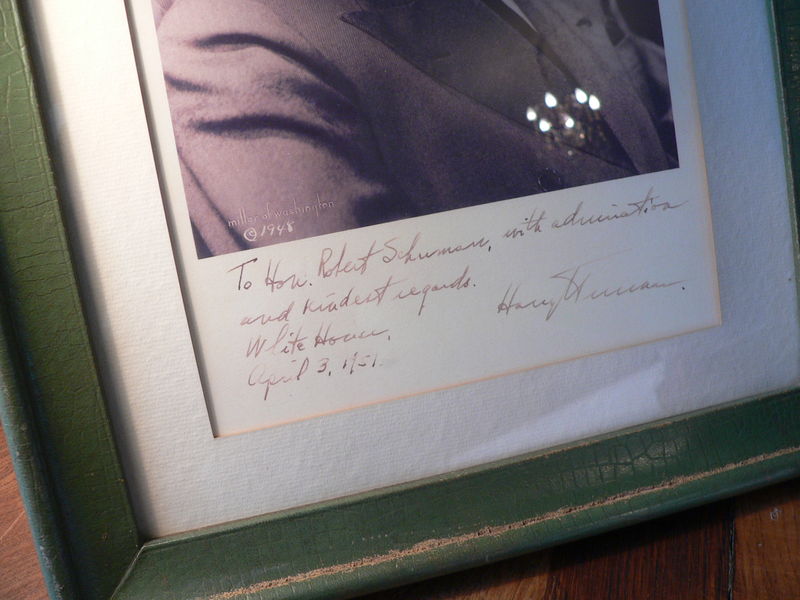 miller of washington
©1948
To Hon. Robert Schuman, with admiration
and kindest regards.
Harry Truman.
White House,
April 3, 1951.